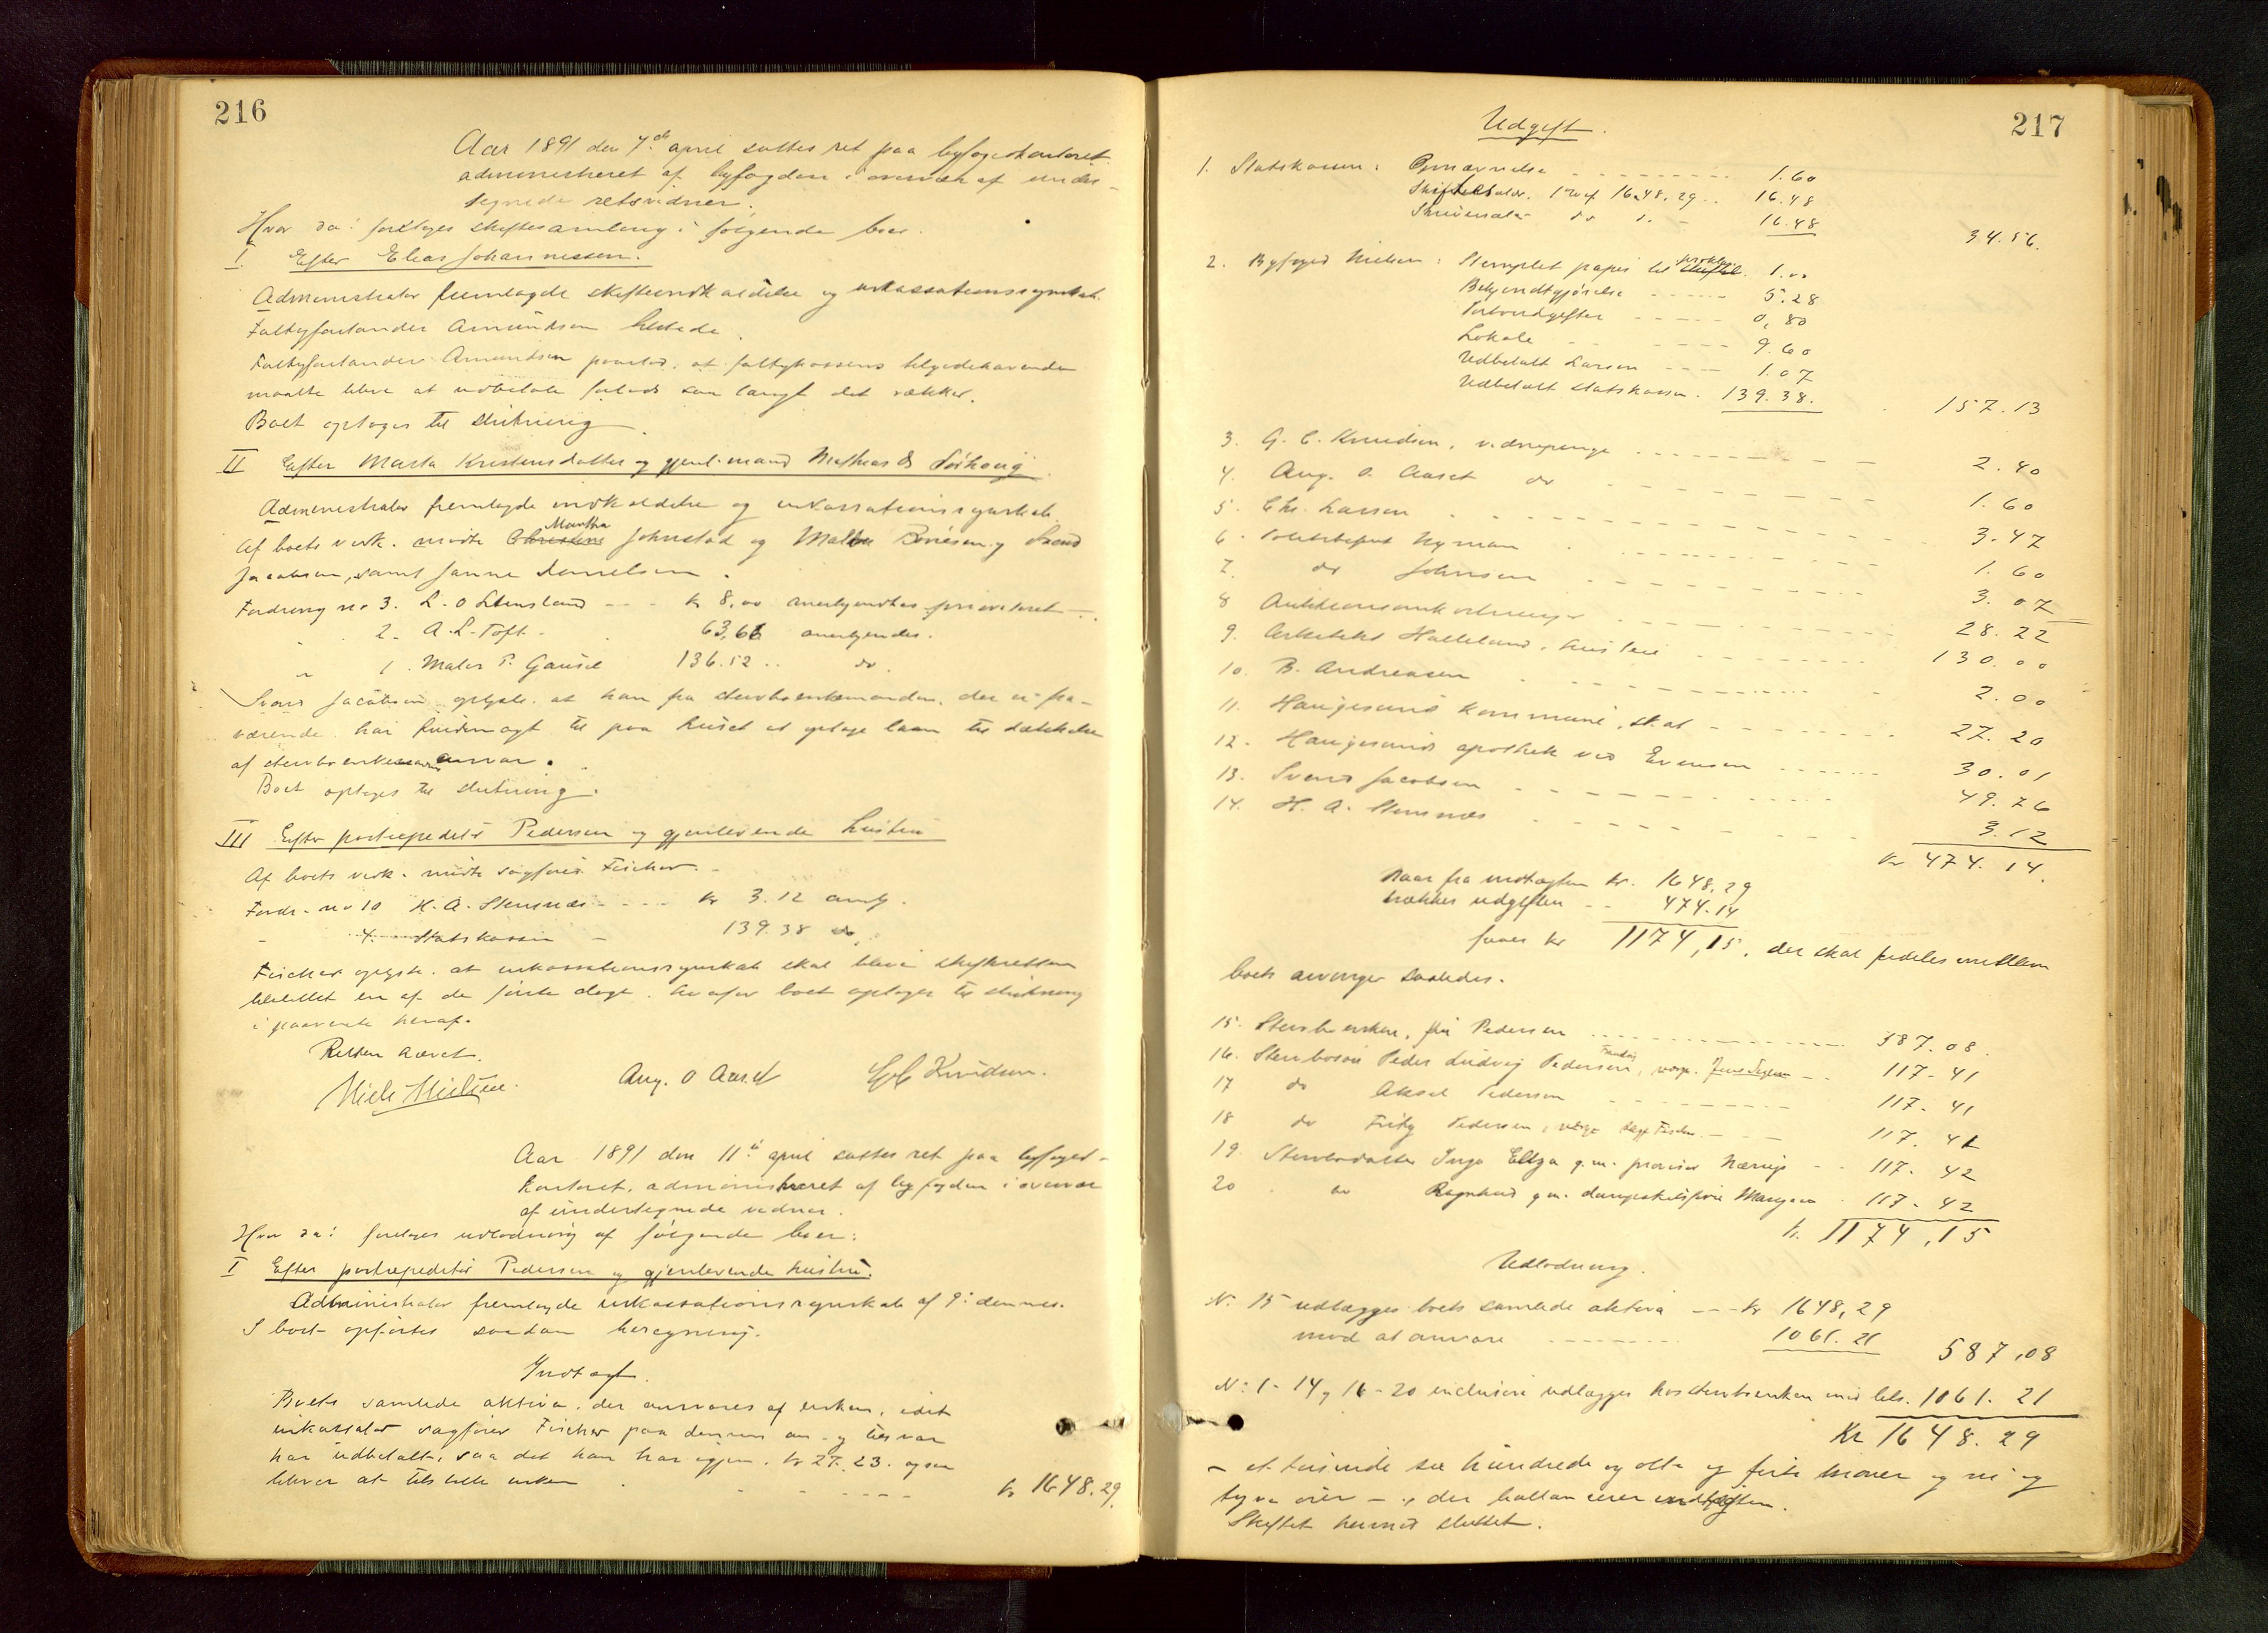 216
Aar 1891 den 7de april sattes ret paa byfogedkontoret
administreret af byfogden i overvær af under-
tegnede retsvidner.
Hvor da: foretoges skiftesamling i følgende boer.
I. Efter Elias Johannessen.
Administrator fremlagde skifteindkaldelse og inkassationsregnskab.
Fattigforstander Amundsen mødte.
Fattigforstander Amundsen paastod, at fattigkassens tilgodehavende
maatte blive at udbetale forlods saa langt det rækker.
Boet optoges til slutning.
II Efter Marta Kristensdatter og gjenl. mand Mathias
Administrator fremlagde indkaldelse og inkassationsregnskab.
Af boets vedk. mødte Martha Johnstad og Svend
Jacobsen, samt Janne Danielsen.
Fordring no 3. L. O Stensland - - - kr 8,00 anerkjendtes prioriteret -
" 2. A. L. Toft - 63,66 anerkjendes.
" 1. Maler P. Gausel 136.52 .. do
Svend Jacobsen oplyste, at han fra stervboenkemanden, der er fra-
værende, har fuldmagt til paa huset at optage laan til dækkelse
af ansvar.
Boet optoges til slutning.
III Efter postexpeditør Pedersen og gjenlevende hustru
Af boets vedk. mødte sagfører Fischer. -
Fordr. no 10 H. A. Stensnæs - - - - kr 3.12 anerkj.
- 4. Statskassen - 139.38 do
Fischer oplyste, at inkassationsregnskab skal blive skifteretten
tilstillet en af de første dage, hvorfor boet optoges til slutning
i paavente heraf.
Retten hævet.
Niels Nielsen. Aug. O Aaset G C Knudsen.
Aar 1891 den 11te april sattes ret paa byfoged-
kontoret, administreret af byfogden i overvær
af undertegnede vidner.
Hvor da: foretoges udlodning af følgende boer:
I Efter postexpeditør Pedersen og gjenlevende hustru.
Administrator fremlagde inkassationsregnskab af 9: dennes.
I boet opførtes saadan beregning.
Indtægt.
Boets samlede aktiva, der ansvares af enken, idet
inkassator sagfører Fischer paa dennes an- og tilsvar
har udbetalt, saa det han har igjen, kr 27.23. ogsaa
bliver at tilstille enken - - - - - - kr 1648.29.
217
Udgift.
1. Statskassen: Opnævnelse - - - - - 1.60
Skiftesalær. 1% af 1648.29 .. 16.48
Skriversalær do " - 16.48 34.56.
2. Byfoged Nielsen: Stemplet papir til proklama 1.00
Bekjendtgjørelse - - - - 5.28
Portoudgifter - - - - - 0,80
Lokale - - - - - 9.60
Udbetalt Larsen - - - - 1.07
Udbetalt statskassen. 139.38. 157.13
3. G. C. Knudsen, vidnepenge - - - - - - 2.40
4. Aug. O. Aaset do - - - - - - 1.60
5. Chr. Larsen - - - - - - 3.47
6. Politibetjent Nyman - - - - - - 1.60
7. do Johnsen - - - - - - 3.07
8 Auktionsomkostninger - - - - - - 28.22
9. Arkitekt Halleland, husleie - - - - - - 130.00
10. B. Andreasen - - - - - - 2.00
11. Haugesunds kommune, skat - - - - - - 27.20
12. Haugesunds apothek ved Evensen - - - - - - 30.01
13. Svend Jacobsen - - - - - - 49.76
14. H. A. Stensnæs - - - - - - 3.12
kr 474.14.
Naar fra indtægten kr. 1648,29
trækkes udgiften - - 474.14
faaes kr 1174,15, der skal fordeles mellem
boets arvinger saaledes.
15. Stervboenken, fru Pedersen - - - - - - 587.08.
16. Stervbosøn Peder Ludvig Pedersen, værge - - 117.41
17 do Aksel Pedersen - - - - - - 117.41
18 do Fritz Pedersen, værge sagf Fischer - - - 117.42
19. Stervbodatter Inga Eliza g.m. provisor Nærup - - 117.42
20 do Ragnhild g.m. dampskibsfører 117.42
kr. 1174,15
Udlodning.
No. 15 udlægges boets samlede aktiva - - - kr 1648,29
mod at ansvare - - - - - - 1061.21 587,08
No: 1-14 og 16-20 inclusive udlægges hos stervboenken med tils. 1061.21
Kr 1648.29
- et tusinde sex hundrede og otte og førti kroner og ni og
tyve ører - , der ballancerer indtægten.
Skiftet hermed sluttet.